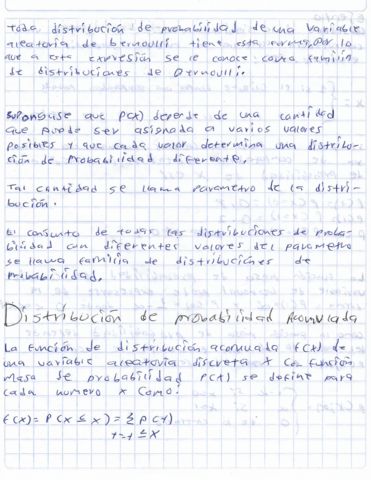 Toda distribución de probabilidad de una variable
aleatoria de bernoulli tiene esta forma, Por lo
que a esta expresión se le conoce como familia
de distribuciones de Bernoulli.
Suponguse que P(x) depende de una cantidad
que puede ser asignada a varios valores
posibles y que cada valor determina una distribu-
ción de probabilidad diferente.
Tal cantidad se llama parametro de la distri-
bución.
El conjunto de todas las distribuciones de proba-
bilidad con diferentes valores del parametro
se llama familia de distribuciones de
probabilidad.
Distribución de probabilidad Acomulada
La función de distribución acomuada F(x) de
una variable aleatoria discreta X con función
masa de probabilidad P(x) se define para
cada numero x como:
F(x) = P(X ≤ x) = Σ P(y)
y=y ≤ x